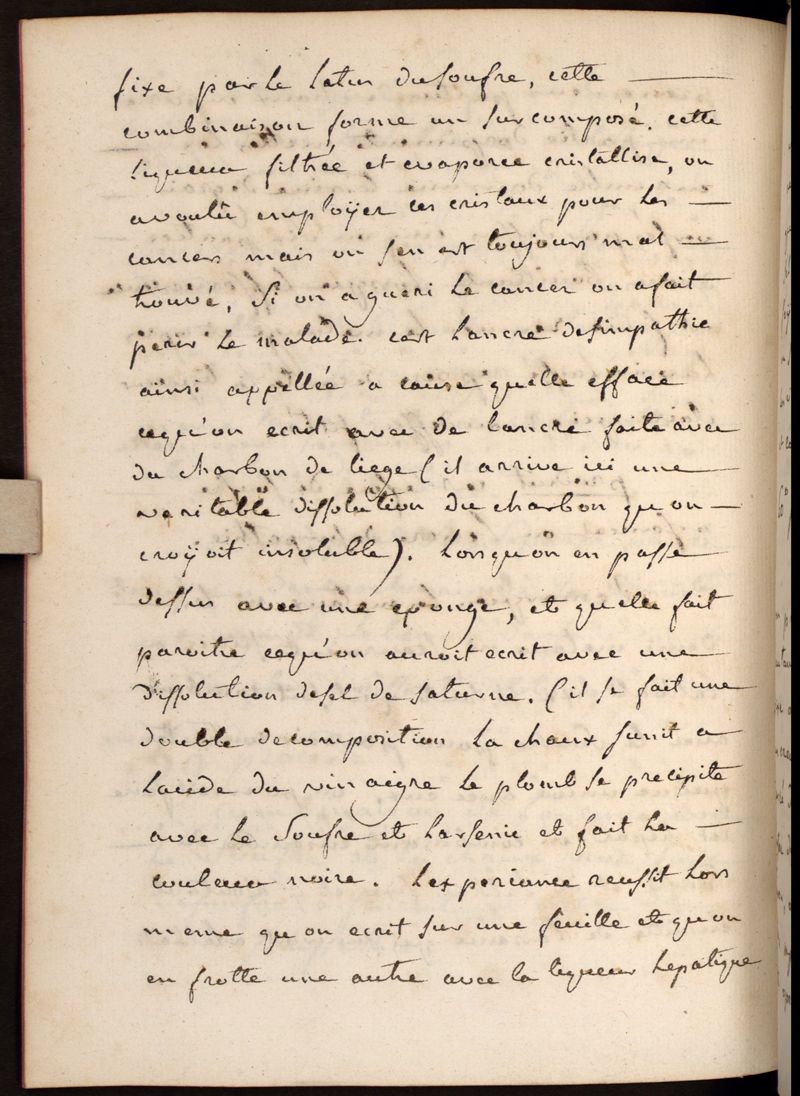 fixe par le latus du soufre, cette
combinaison forme un surcomposé. cette
liqueur filtrée et evaporée cristallise, on
a voulu employer ces cristaux pour les
cancers mais on sen est toujours mal
trouvé, si on a gueri le cancer on a fait
perir le malade. cest lancre desimpathie
ainsi appellée a cause quelle efface
cequ'on ecrit avec de lancre faite avec
du charbon de liege (il arrive ici une
veritable dissolution du charbon qu on
croÿoit insoluble). lorsqu'on en passe
dessus avec une eponge, et quelle fait
paroitre cequ'on auroit ecrit avec une
dissolution desel de saturne. (il se fait une
double decomposition la chaux sunit a
lacide du vinaigre le plomb se precipite
avec le soufre et larsenic et fait la
couleur noire. lexperiance reussit lors
meme qu on ecrit sur une feuille et qu on
en frotte une autre avec la liqueur hepatique